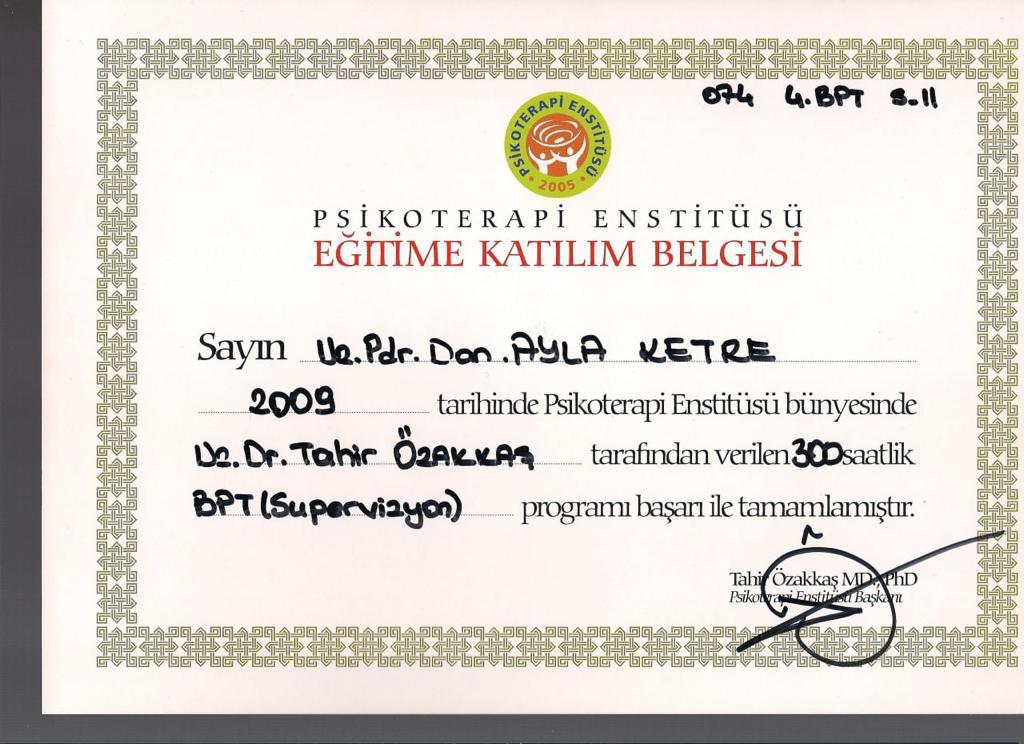 074 4.BPT S.11
PSİKOTERAPİ ENSTİTÜSÜ
• 2005 •
PSİKOTERAPİ ENSTİTÜSÜ
EĞİTİME KATILIM BELGESİ
Sayın Uz.Pdr.Dan.AYLA KETRE
2009 tarihinde Psikoterapi Enstitüsü bünyesinde
Uz.Dr.Tahir ÖZAKKAŞ tarafından verilen 300 saatlik
BPT(Supervizyon) programı başarı ile tamamlamıştır.
Tahir Özakkaş MD., PhD
Psikoterapi Enstitüsü Başkanı